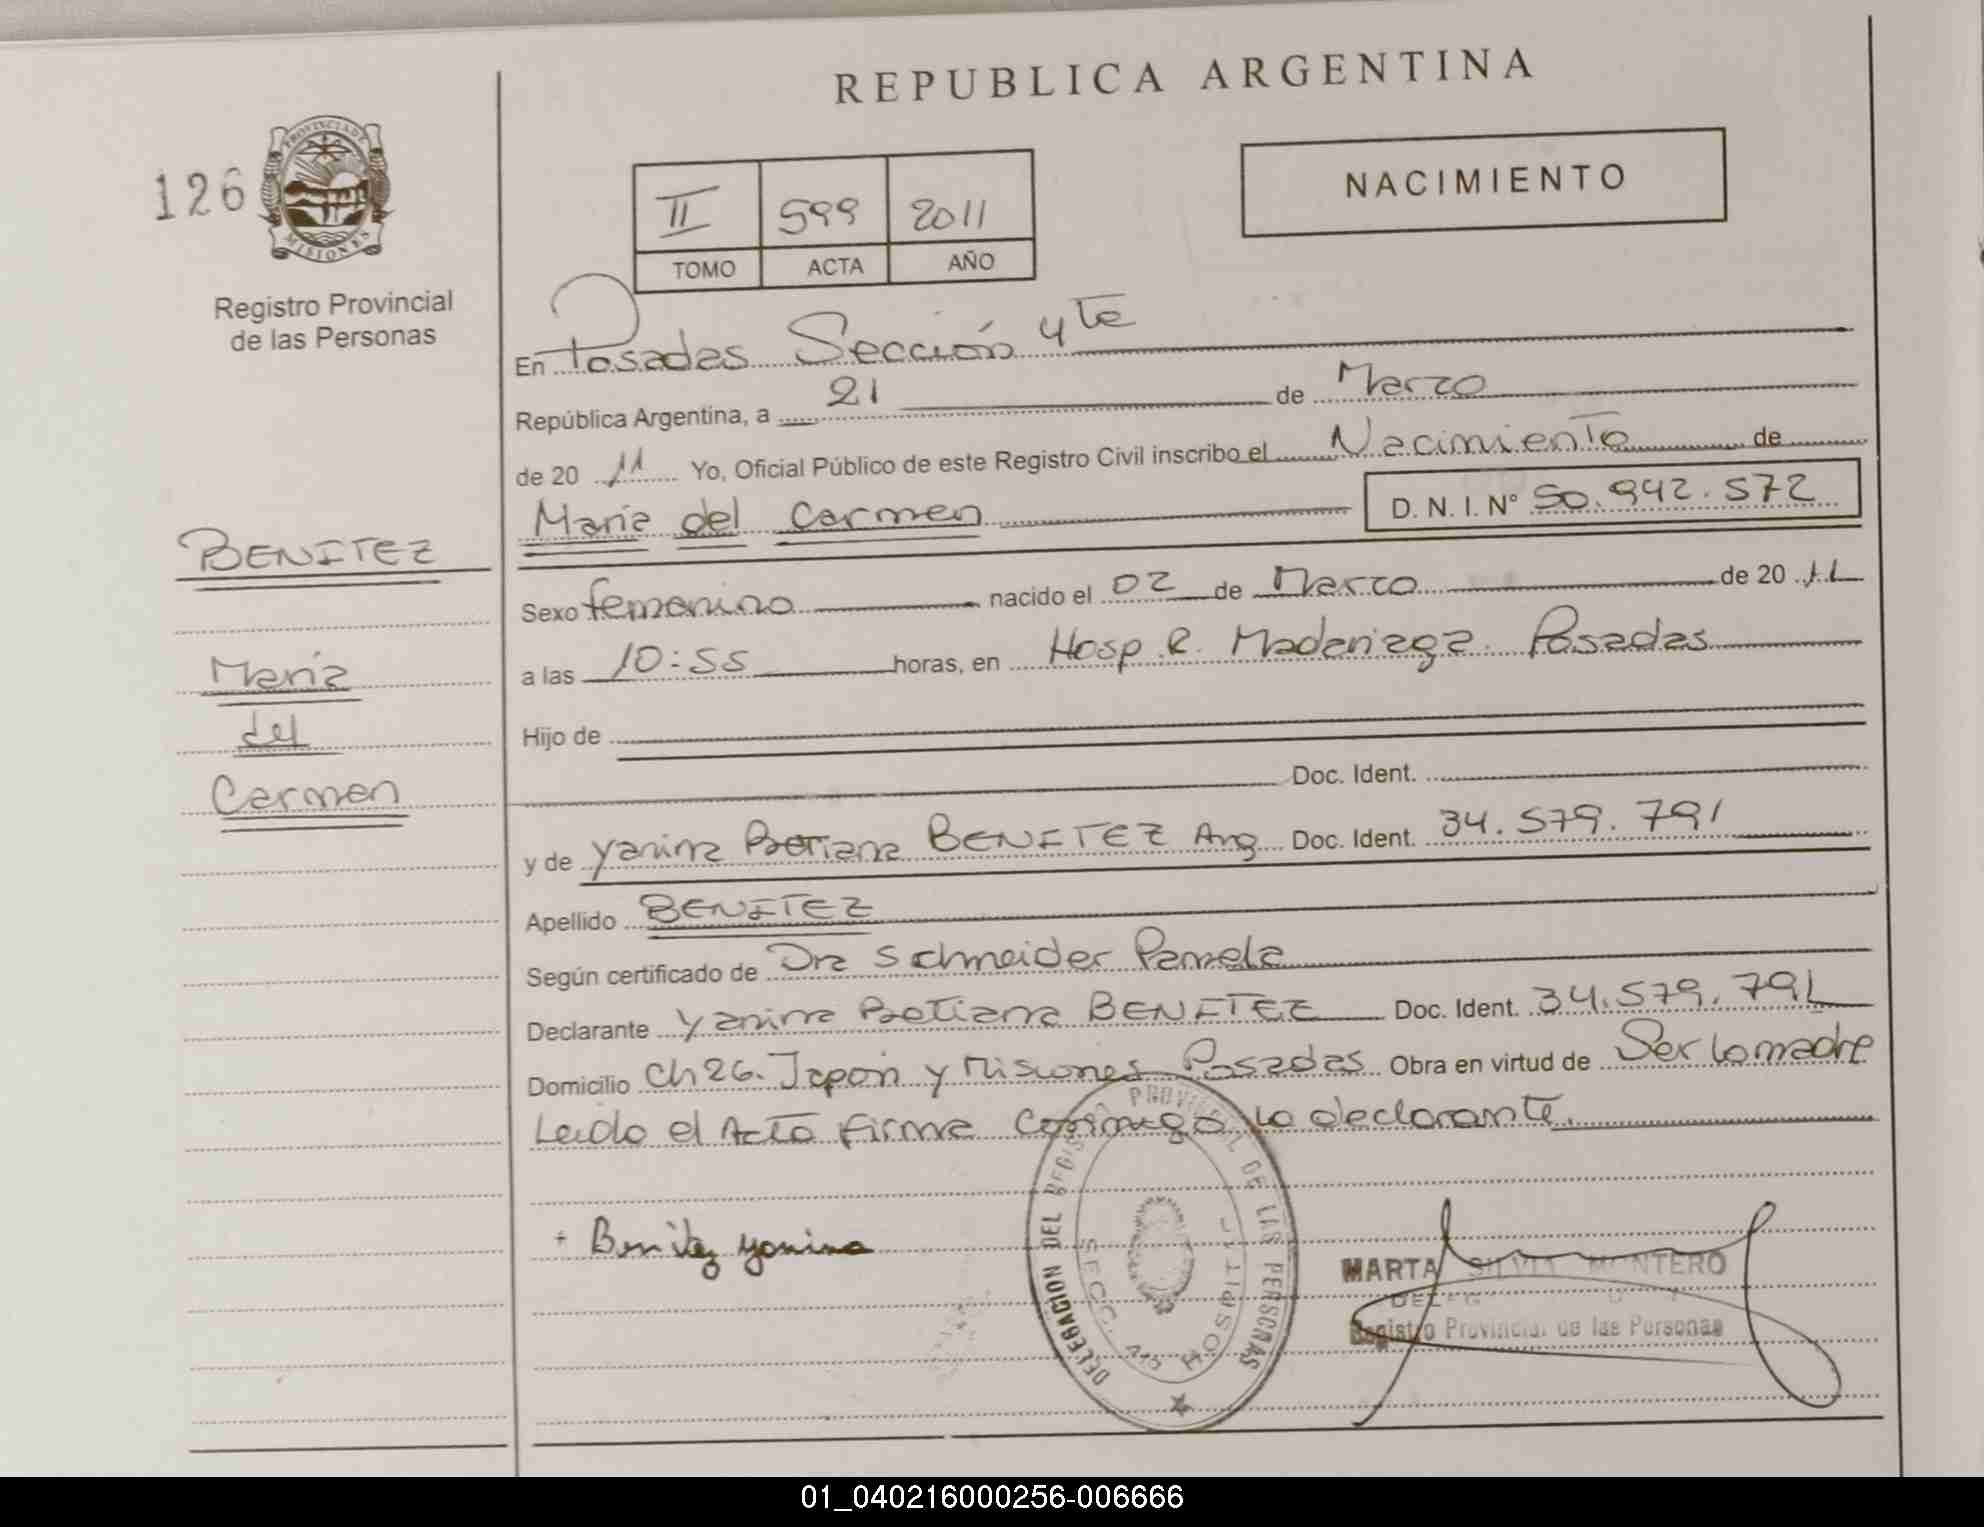 REPUBLICA ARGENTINA
126
PROVINCIA DE
MISIONES
Registro Provincial
de las Personas
II 599 2011
TOMO ACTA AÑO
NACIMIENTO
En Posadas Sección 4ta
República Argentina, a 21 de Marzo
de 20 11 Yo, Oficial Público de este Registro Civil inscribo el Nacimiento de
María del Carmen D. N. I. N° 50.942.572
BENITEZ
María
del
Carmen
Sexo femenino nacido el 02 de Marzo de 20 11
a las 10:55 horas, en Hosp. R. Madariaga. Posadas
Hijo de
Doc. Ident.
y de Yanina BENITEZ Arg Doc. Ident. 34.579.791
Apellido BENITEZ
Según certificado de Dra Schneider Pamela
Declarante Yanina BENITEZ Doc. Ident. 34.579.791
Domicilio Ch 26. Japón y Misiones Posadas Obra en virtud de Ser la madre
Leido el Acta firma Conmigo la declarante.
DELEGACION DEL REGISTRO PROVINCIAL DE LAS PERSONAS
SECC. 4ta HOSPITAL
+ Benitez yanina
MARTA SILVIA MONTERO
Registro Provincial de las Personas
01_040216000256-006666